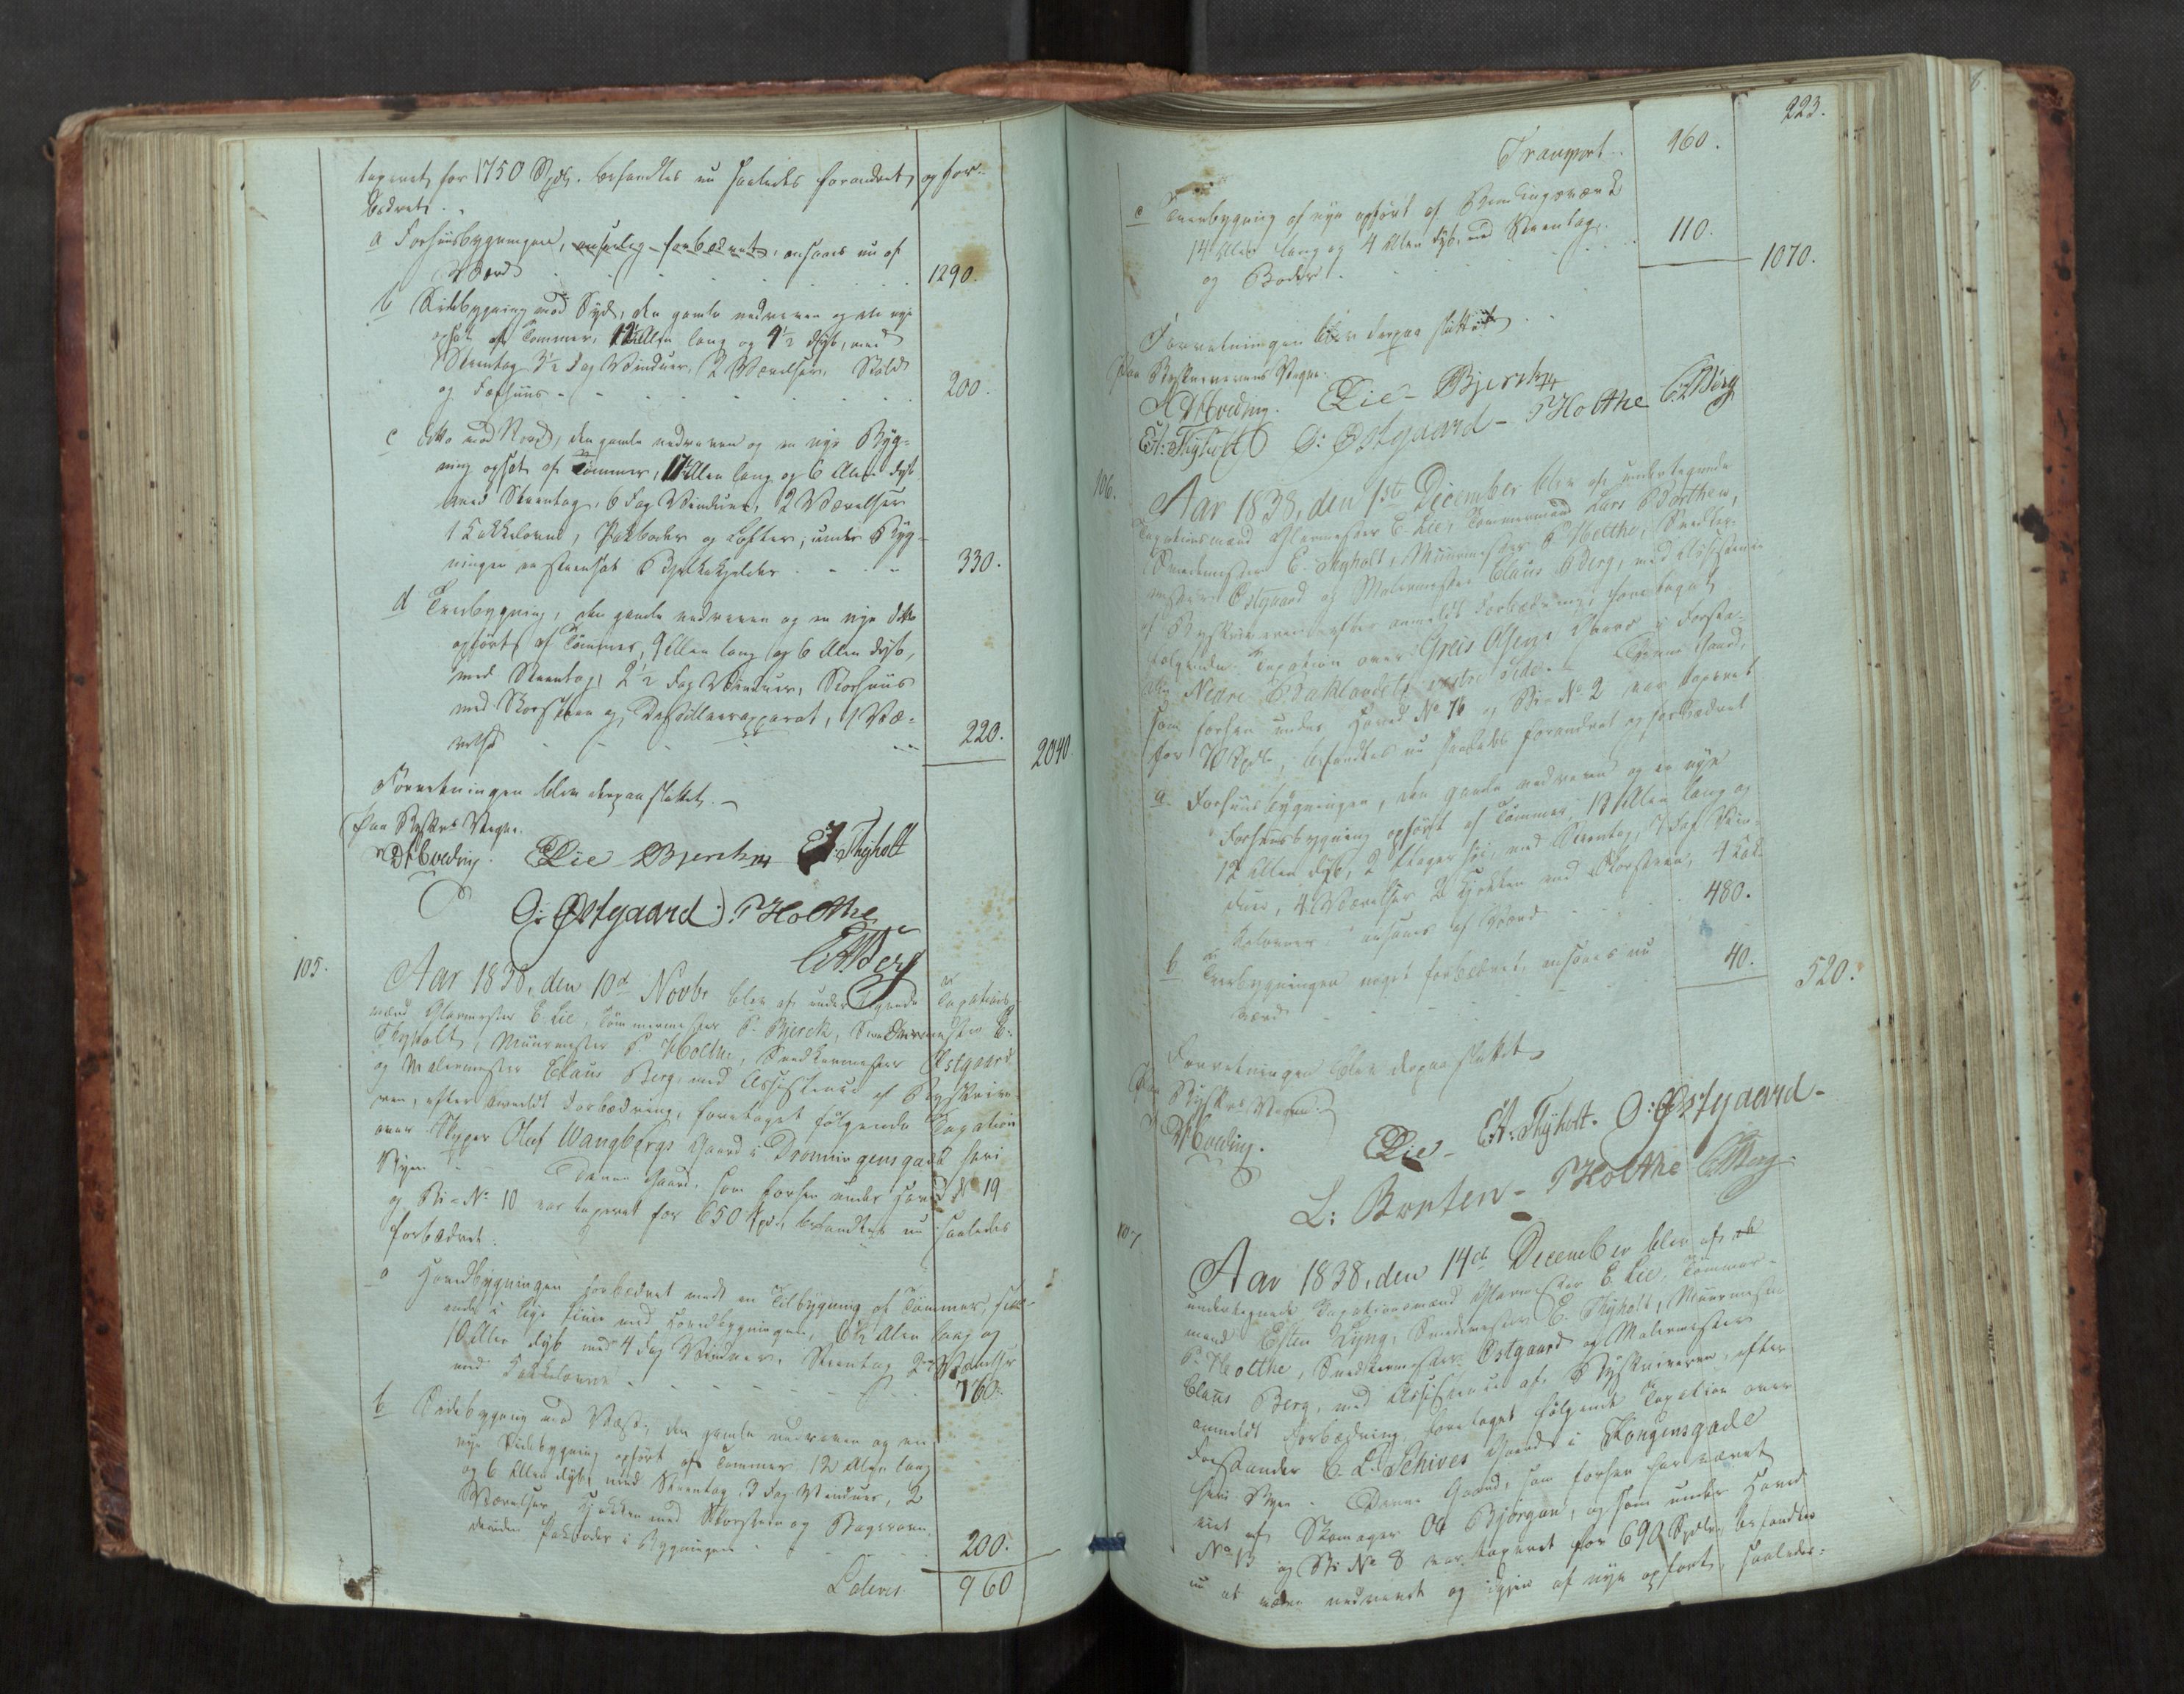 taxeret for 1750 Spdlr. befandtes nu saaledes forandret og for-
bedret.
a Forhuusbygningen, ansees nu af
Værd 1290.
b Sidebygning mod Syd, den gamle nedreven og en nye
opsat af Tømmer, Allen lang og 9½ dyb, med
Steentag 3½ Fag Vinduer, 2 Værelser, Stald
og Fæhuus 200.
c ditto mod Nord, den gamle nedreven og en nye Byg-
ning opsat af Tømmer, Allen lang og 6 Alen dyb
med Steentag, 6 Fag Vinduer, 2 Værelser
1 Kakkelovn, Pakboder og Lofter, under Byg-
ningen en steensat Kjelder 330.
d Tverbygning, den gamle nedreven og en nye ditto
opført af Tømmer, 9 Allen lang og 6 Alen dyb,
med Steentag, 2½ Fag Vinduer, Rorhuus
med Skorsteen og Destilleerapparat, 1 Væ-
relse 220. 2040.
Forretningen blev derpaa sluttet.
Paa Byskrs Vegne.
Hveding. E Lie Bjerck E. Thyholt
O: Østgaard P Holthe
C. Berg
105. Aar 1838, den 10de Novbr blev af undertegnede Taxations-
mænd Glarmester E. Lie, Tømmermester P. Bjerck, Smedemester E.
Thyholt, Muurmester P. Holthe, Snedkermester Østgaard
og Malermester Claus Berg, med Assistence af Byskrive-
ren, efter anmeldt Forbedring, foretaget følgende Taxation
over Skipper Oluf Wangbergs Gaard i Dronningensgade heri
Byen. Denne Gaard, som forhen under Hoved No 19
og Bi-No 10 var taxeret for 650 Spd, befandtes nu saaledes
forbedret.
a Hovedbygningen forbedret med en Tilbygning af Tømmer,
i lige Linie med Hovedbygningen, 6½ Alen lang og
10 Allen dyb med 4 Fag Vinduer, Steentag 2 Værelser
med Kakkelovne 760.
b Sidebygning mod Vest, den gamle nedreven og en
nye Sidebygning opført af Tømmer 12 Alen lang
og 6 Allen dyb, med Steentag, 3 Fag Vinduer, 2
Værelser, Kjøkken med Skorsteen og Bagerovn,
desuden Pakboder i Bygningen 200.
Lateris 960
223.
Transport 960.
c Tverbygning af nye opført af Bindingsværk
14 Allen lang og 4 Allen dyb, med Steentag,
og Boder 110. 1070.
Forretningen blev derpaa sluttet
Paa Byskriverens Vegne.
Hveding. E Lie Bjerck C. Berg
E. Thyholt O: Østgaard P Holthe
106. Aar 1838, den 1ste December blev af undertegnede
Taxationsmænd Glarmester E. Lie, Tømmermand Lars Bonthen,
Smedemester E. Thyholt, Muurmester P. Holthe, Snedker-
mester Østgaard og Malermester Claus Berg, med Assistence
af Byskriveren efter anmeldt Forbedring, foretaget
følgende Taxation over Greis Olsens i Forsta-
den Nedre Baklandets vestre Side. Denne Gaard,
som forhen under Hoved No 76 og Bi-No 2 var taxeret
for Spdlr, befandtes nu saaledes forandret og forbedret
a. Forhuusbygningen, den gamle nedreven og en nye
Forhuusbygning opført af Tømmer, 13 Allen lang og
12 Allen dyb, 2 Etager høi, med Steentag, 7 Fag Vin-
duer, 4 Værelser 2 Kjøkken med Skorsteen, 4 Kak-
kelovner, ansees af Værd 480.
b Tverbygningen noget forbedret, ansees nu
Værd 40. 520.
Forretningen blev derpaa sluttet
Paa Byskrs Vegne.
Hveding. E Lie E. Thyholt. O: Østgaard
L: Bonten P Holthe C Berg.
107 Aar 1838, den 14de December blev af
undertegnede Taxationsmænd Glarmester E. Lie, Tømmer-
mand Esten Lyng, Smedemester E. Thyholt, Muurmester
P. Holthe, Snedkermester Østgaard og Malermester
Claus Berg, med Assistence af Byskriveren, efter
anmeldt Forbedring, foretaget følgende Taxation over
Forstander C. L. Schives Gaard i Kongensgade
heri Byen. Denne Gaard, som forhen har været
eiet af Skomager Ole Bjørgan, og som under Hoved
No 13 og Bi No 8 var taxeret for 690 Spdlr, befandtes
nu at være nedrevet og igjen af nye opført, saaledes: